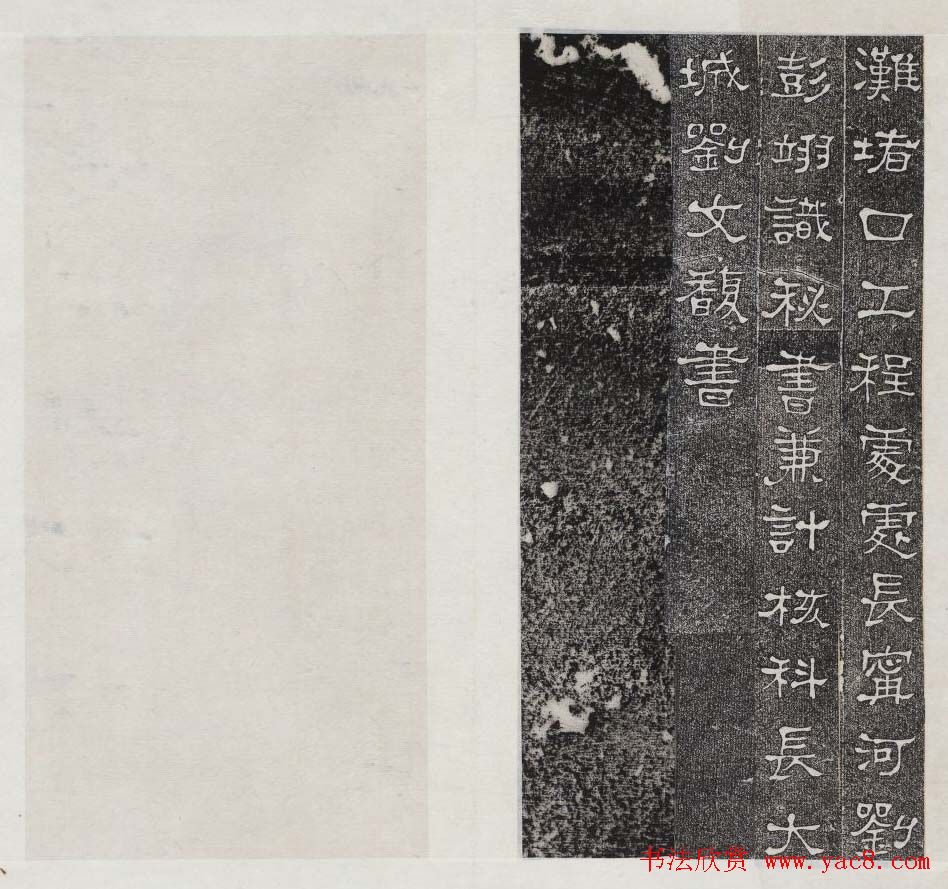 灘堵口工程處處長寗河劉
彭翊識秘書兼計核科長大
城劉文馥書
书法欣赏 www.yac8.com